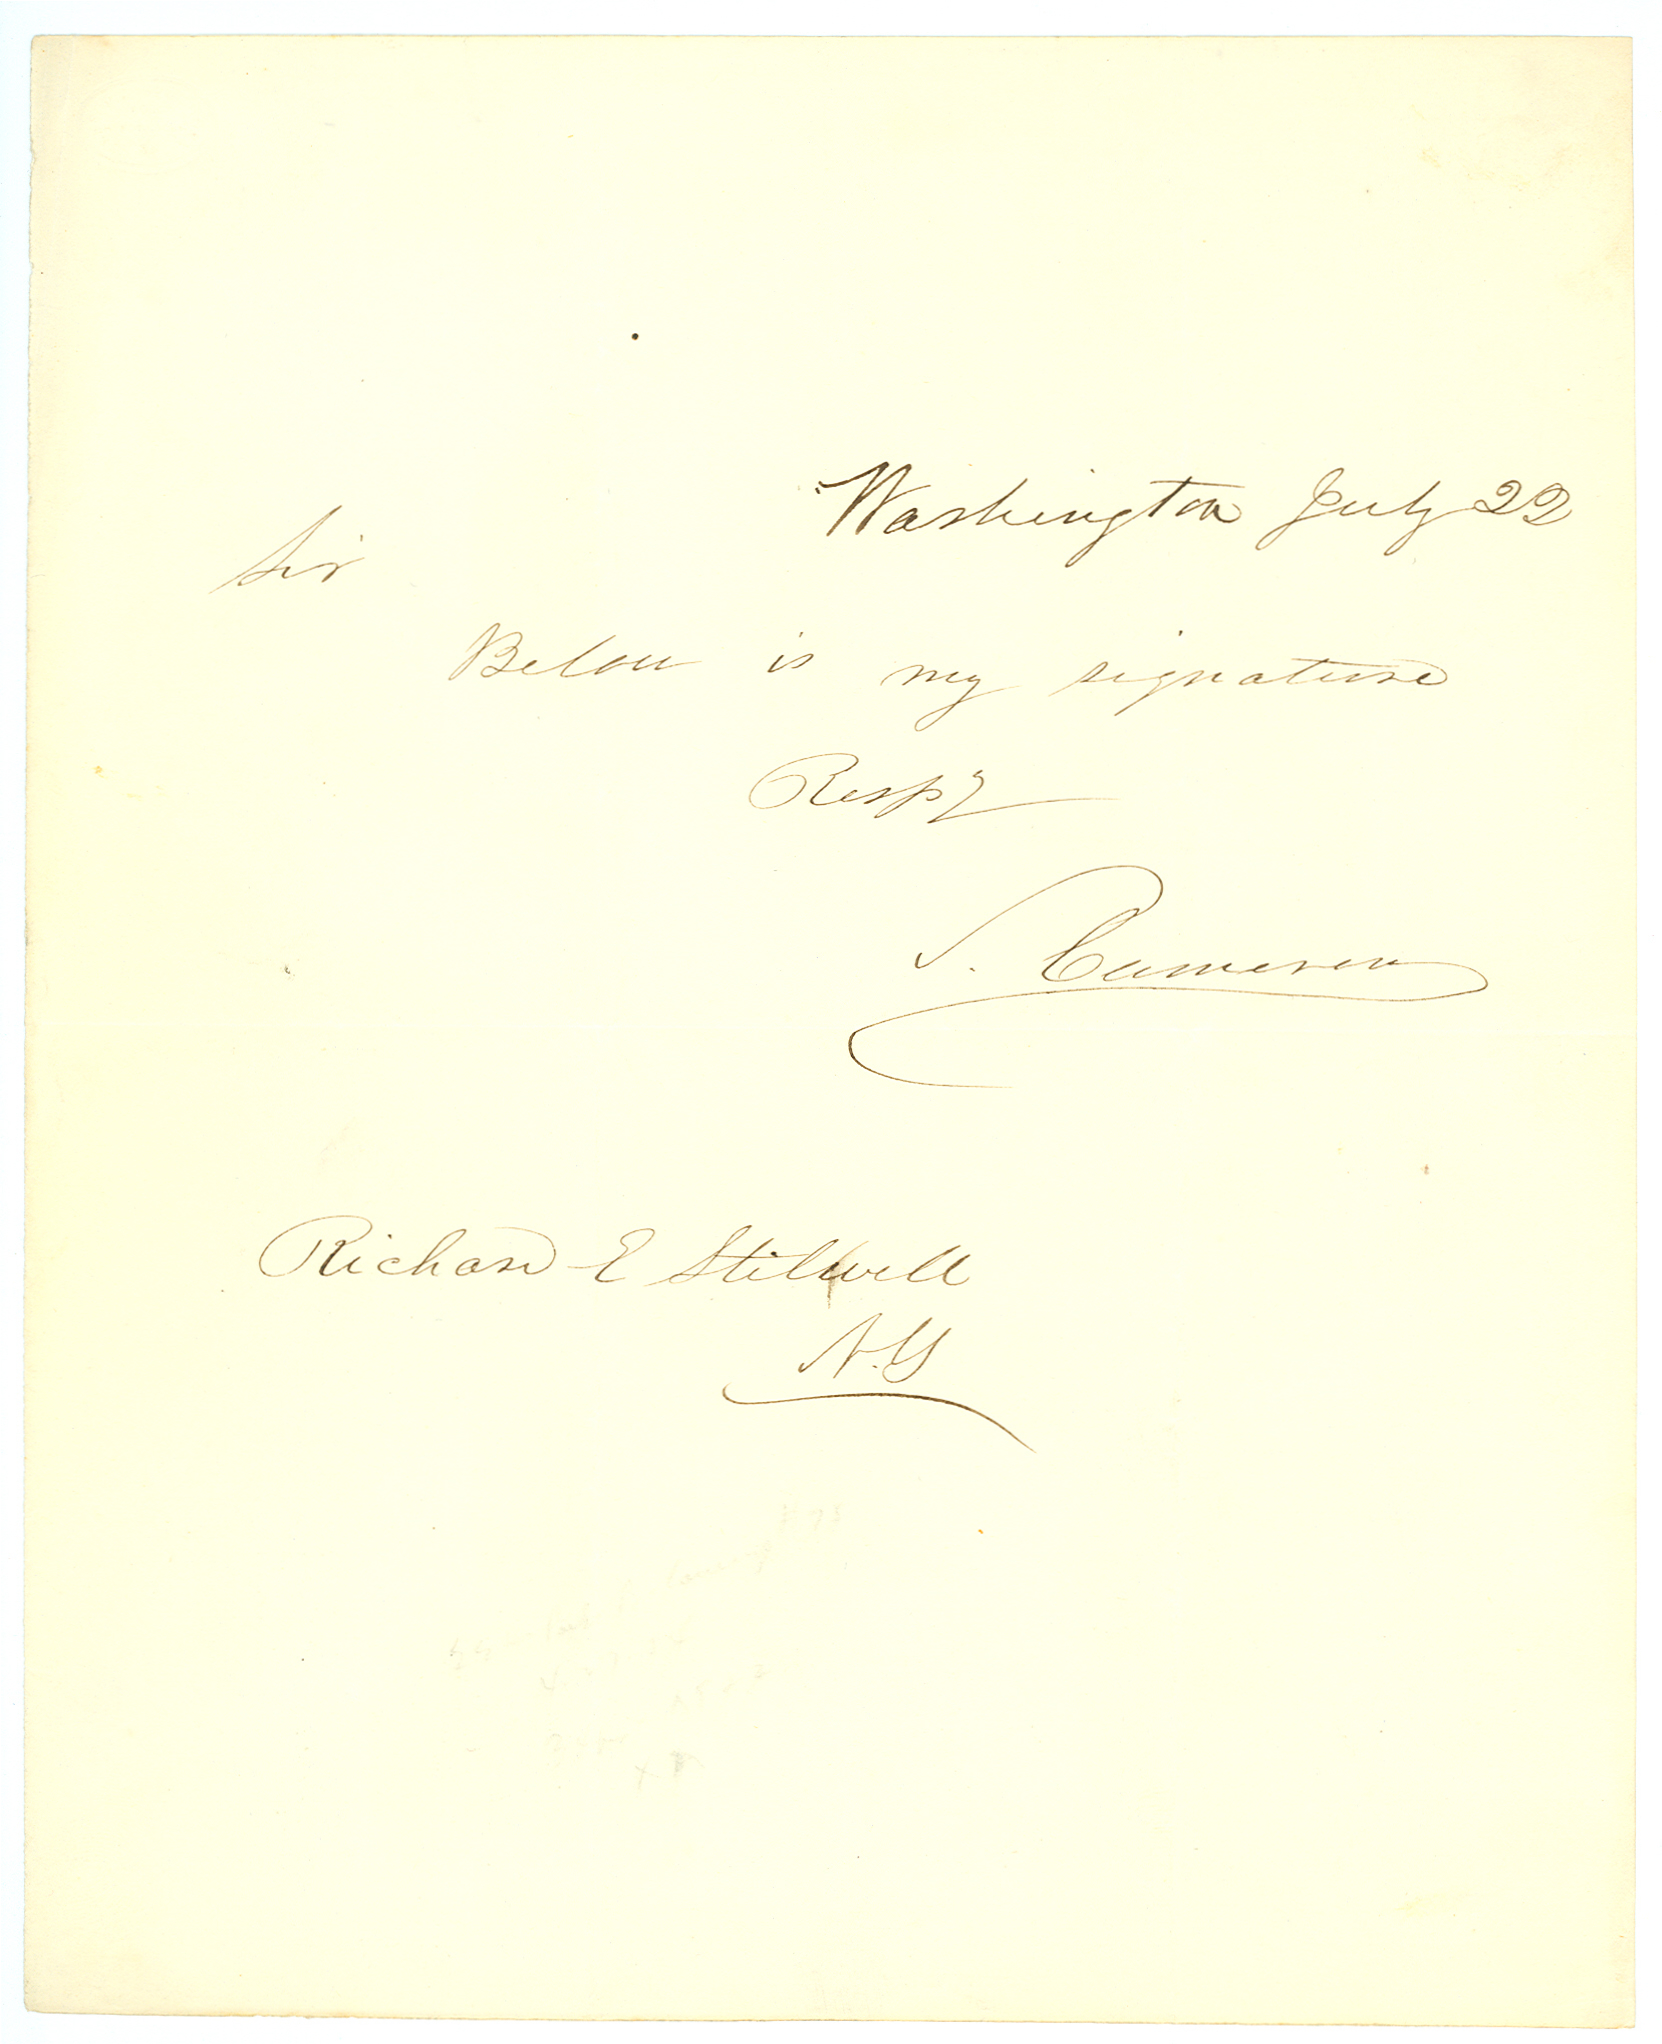 Washington July 22
Sir
Below is my signature
Respy
S. Cameron
Richard E Stillwell
N.Y